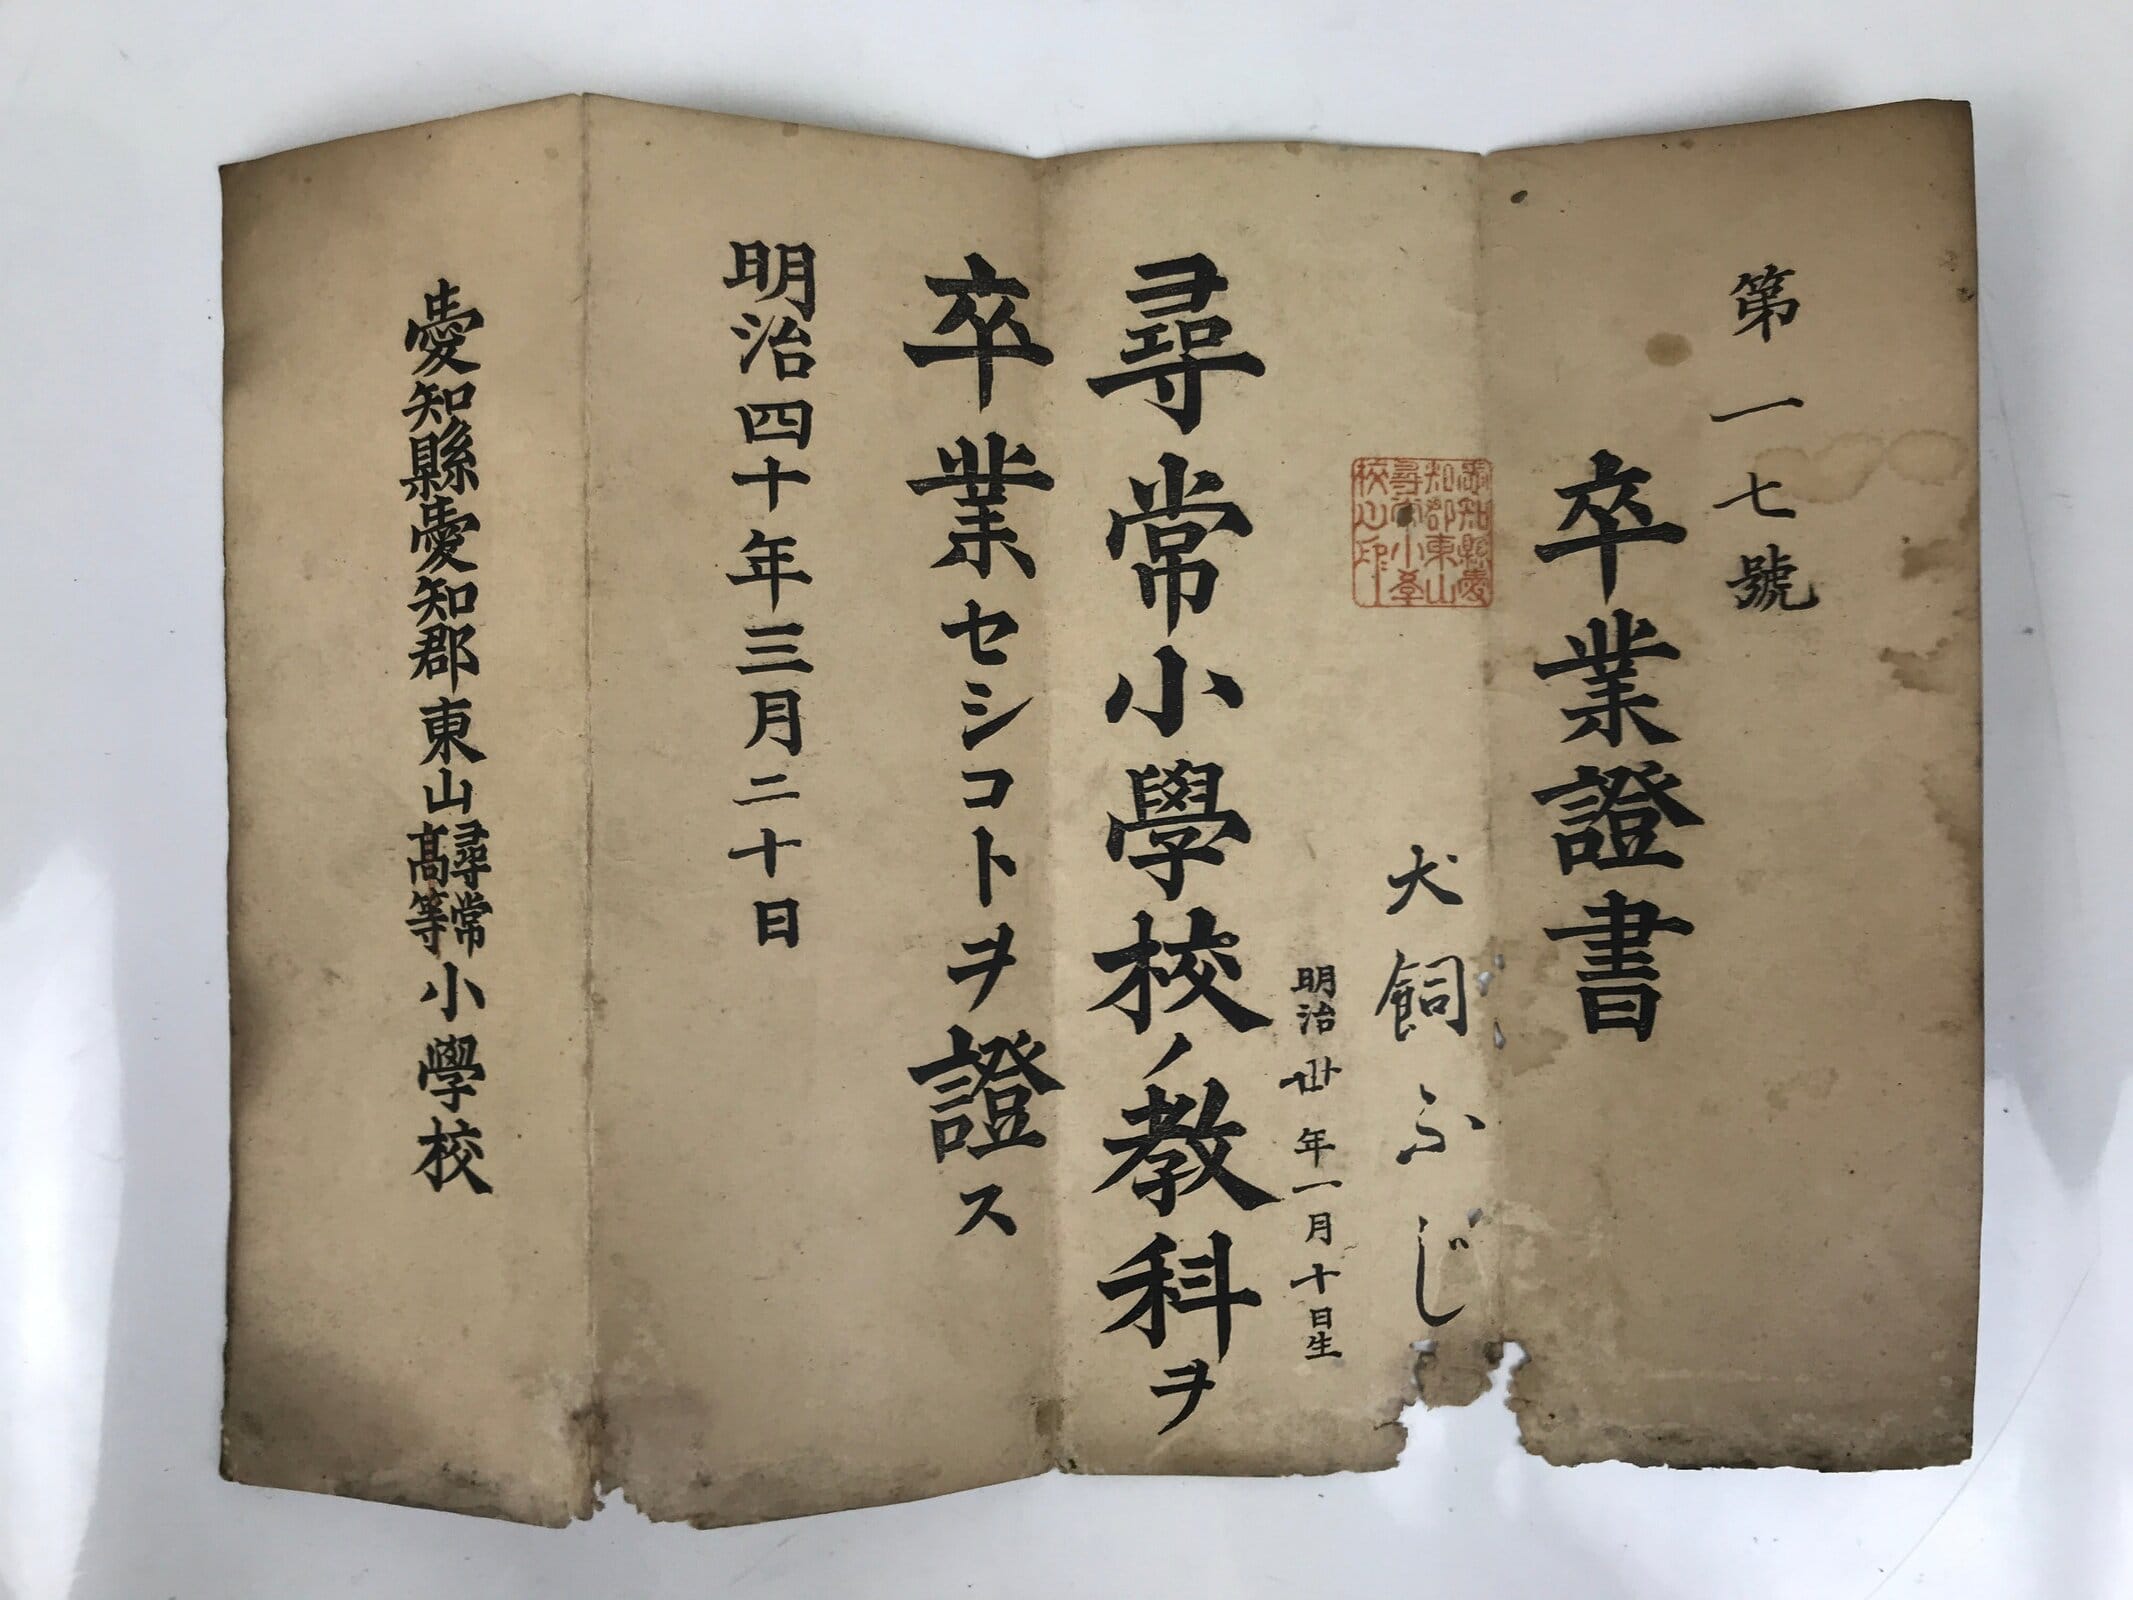 第一七號
卒業證書
愛知縣愛
知郡東山
尋常小學
校之印
犬飼ふじ
明治丗年一月十日生
尋常小學校ノ教科ヲ
卒業セシコトヲ證ス
明治四十年三月二十日
愛知縣愛知郡東山尋常高等小學校